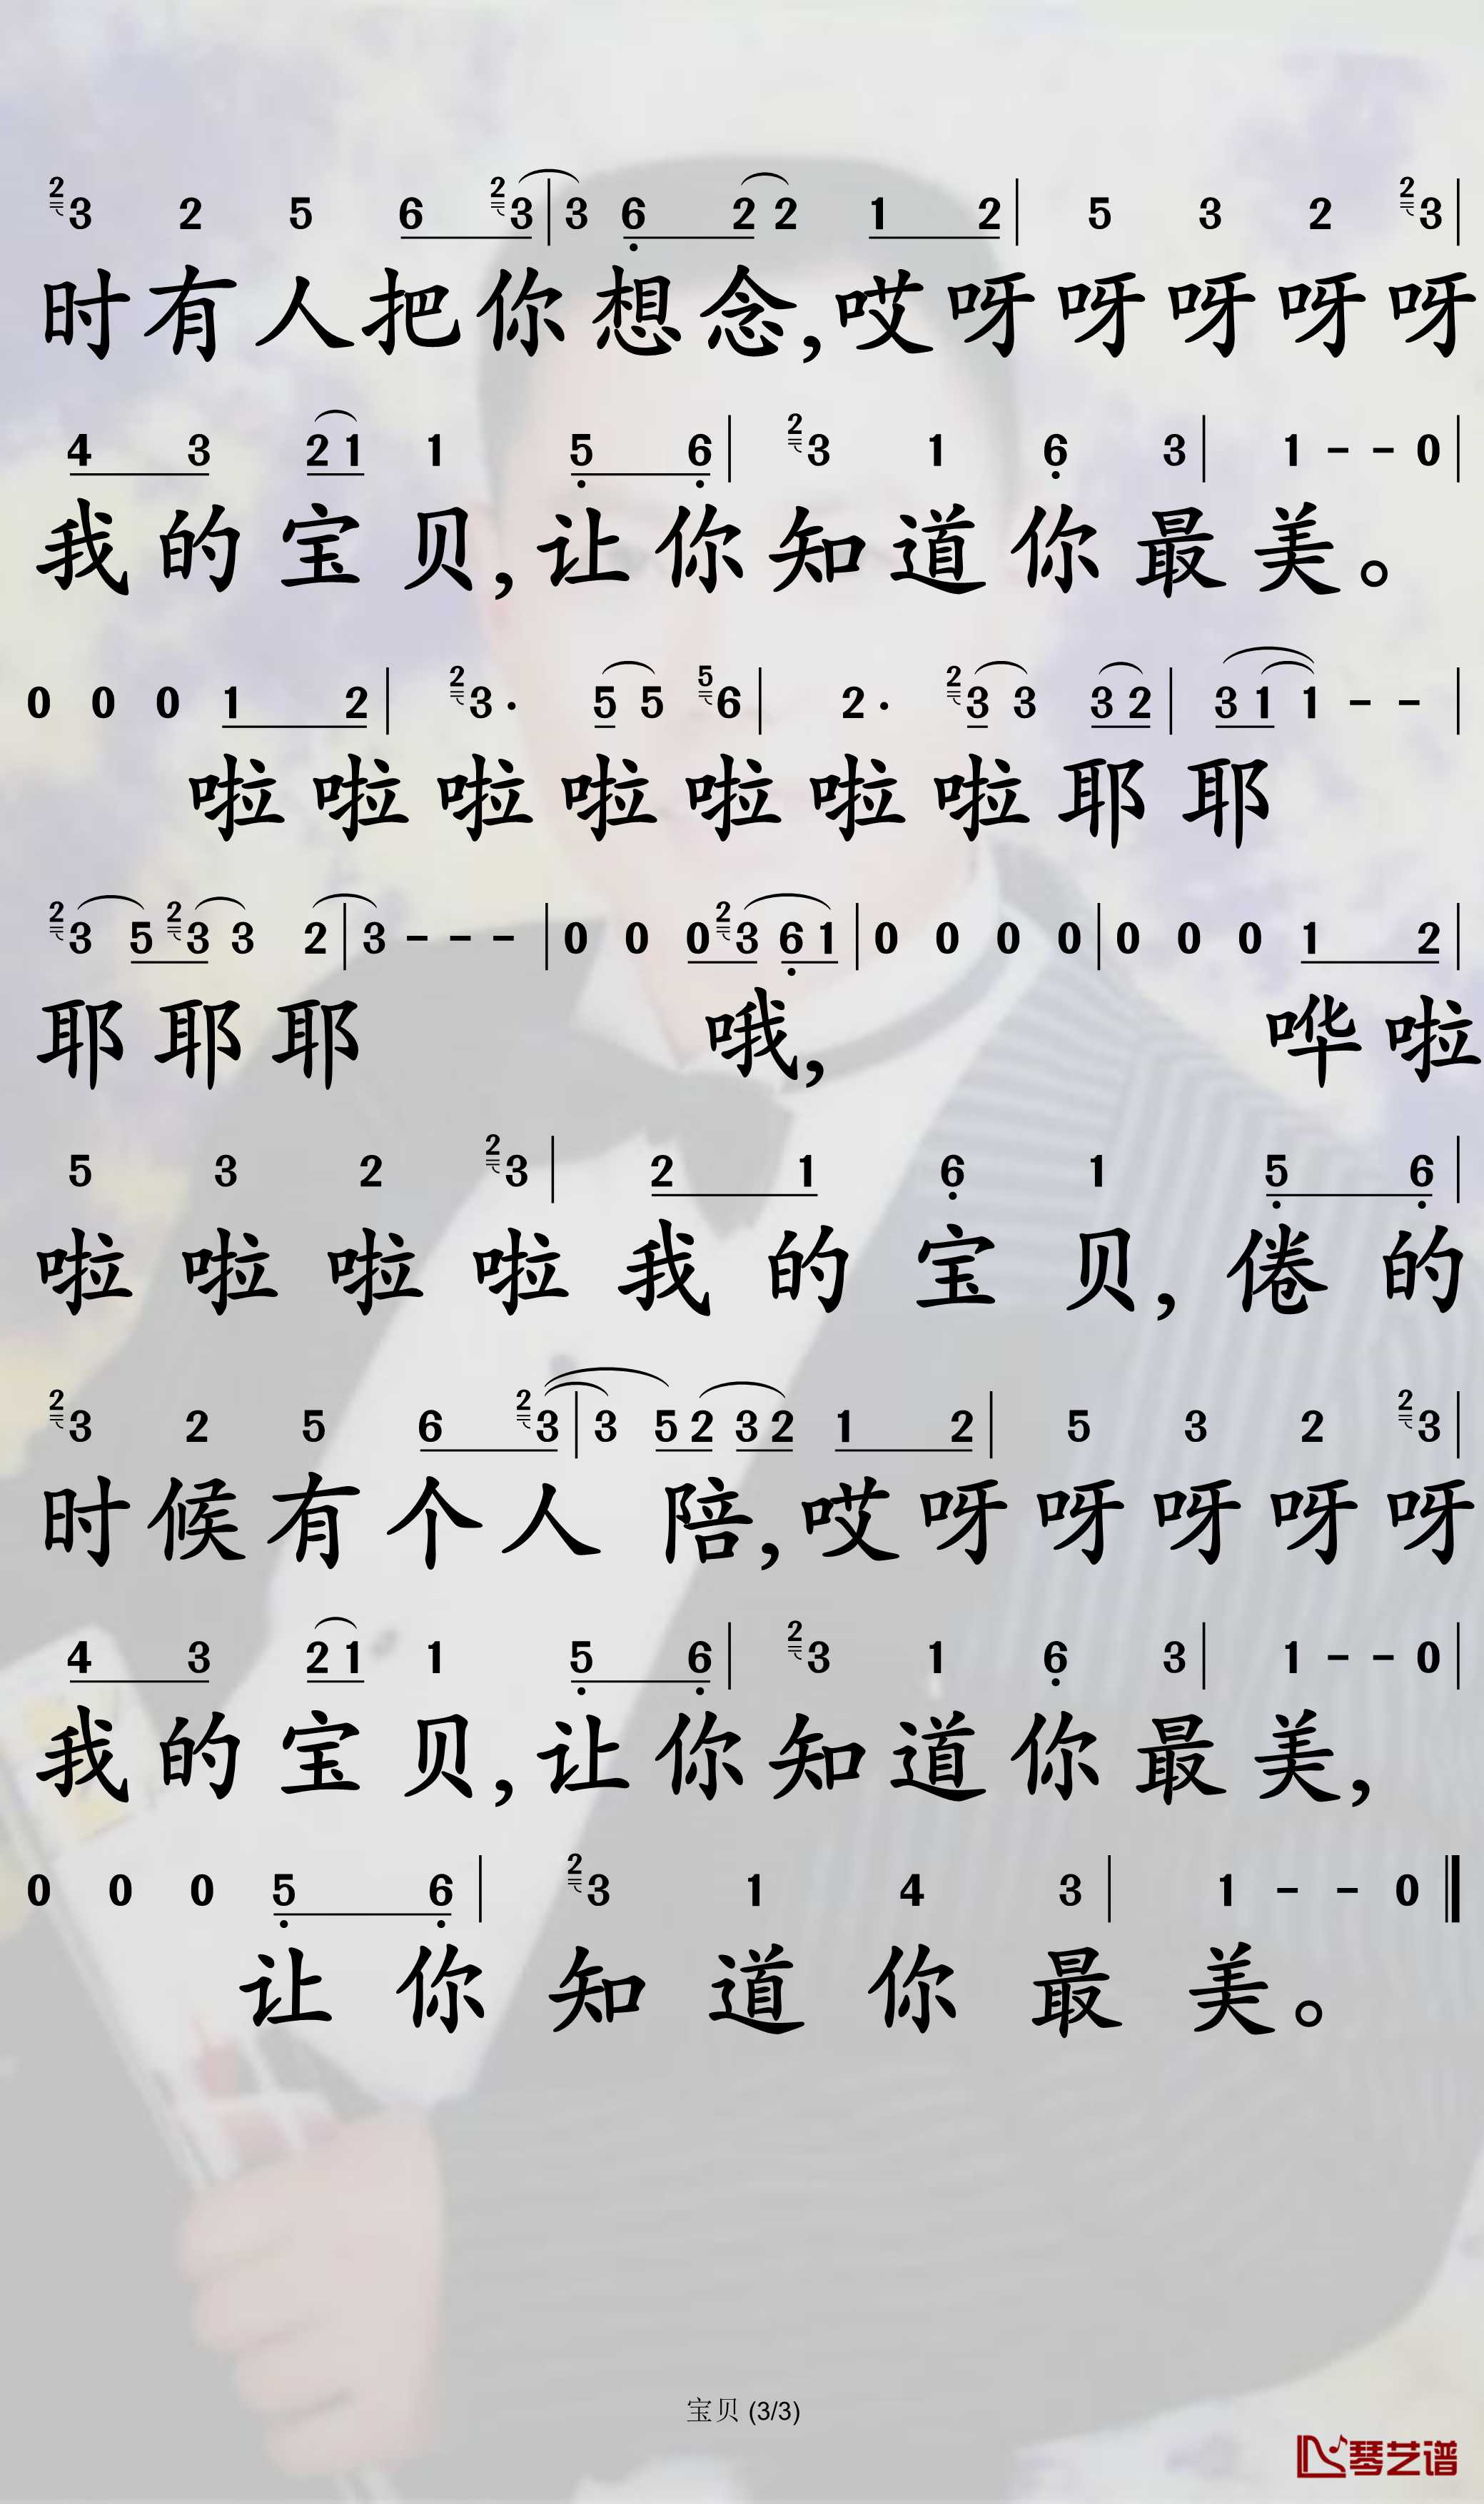 2 3 2 5 6 2 3 | 3 6 2 2 1 2 | 5 3 2 2 3 |
时有人把你想念,哎呀呀呀呀呀
4 3 2 1 1 5 6 | 2 3 1 6 3 | 1 - - 0 |
我的宝贝,让你知道你最美。
0 0 0 1 2 | 2 3 · 5 5 5 6 | 2 · 2 3 3 3 2 | 3 1 1 - - |
啦啦啦啦啦啦啦耶耶
2 3 5 2 3 3 2 | 3 - - - | 0 0 0 2 3 6 1 | 0 0 0 0 | 0 0 0 1 2 |
耶耶耶 哦, 哗啦
5 3 2 2 3 | 2 1 6 1 5 6 |
啦啦啦啦我的宝贝,倦的
2 3 2 5 6 2 3 | 3 5 2 3 2 1 2 | 5 3 2 2 3 |
时候有个人陪,哎呀呀呀呀呀
4 3 2 1 1 5 6 | 2 3 1 6 3 | 1 - - 0 |
我的宝贝,让你知道你最美,
0 0 0 5 6 | 2 3 1 4 3 | 1 - - 0
让你知道你最美。
宝贝 (3/3)
琴艺谱